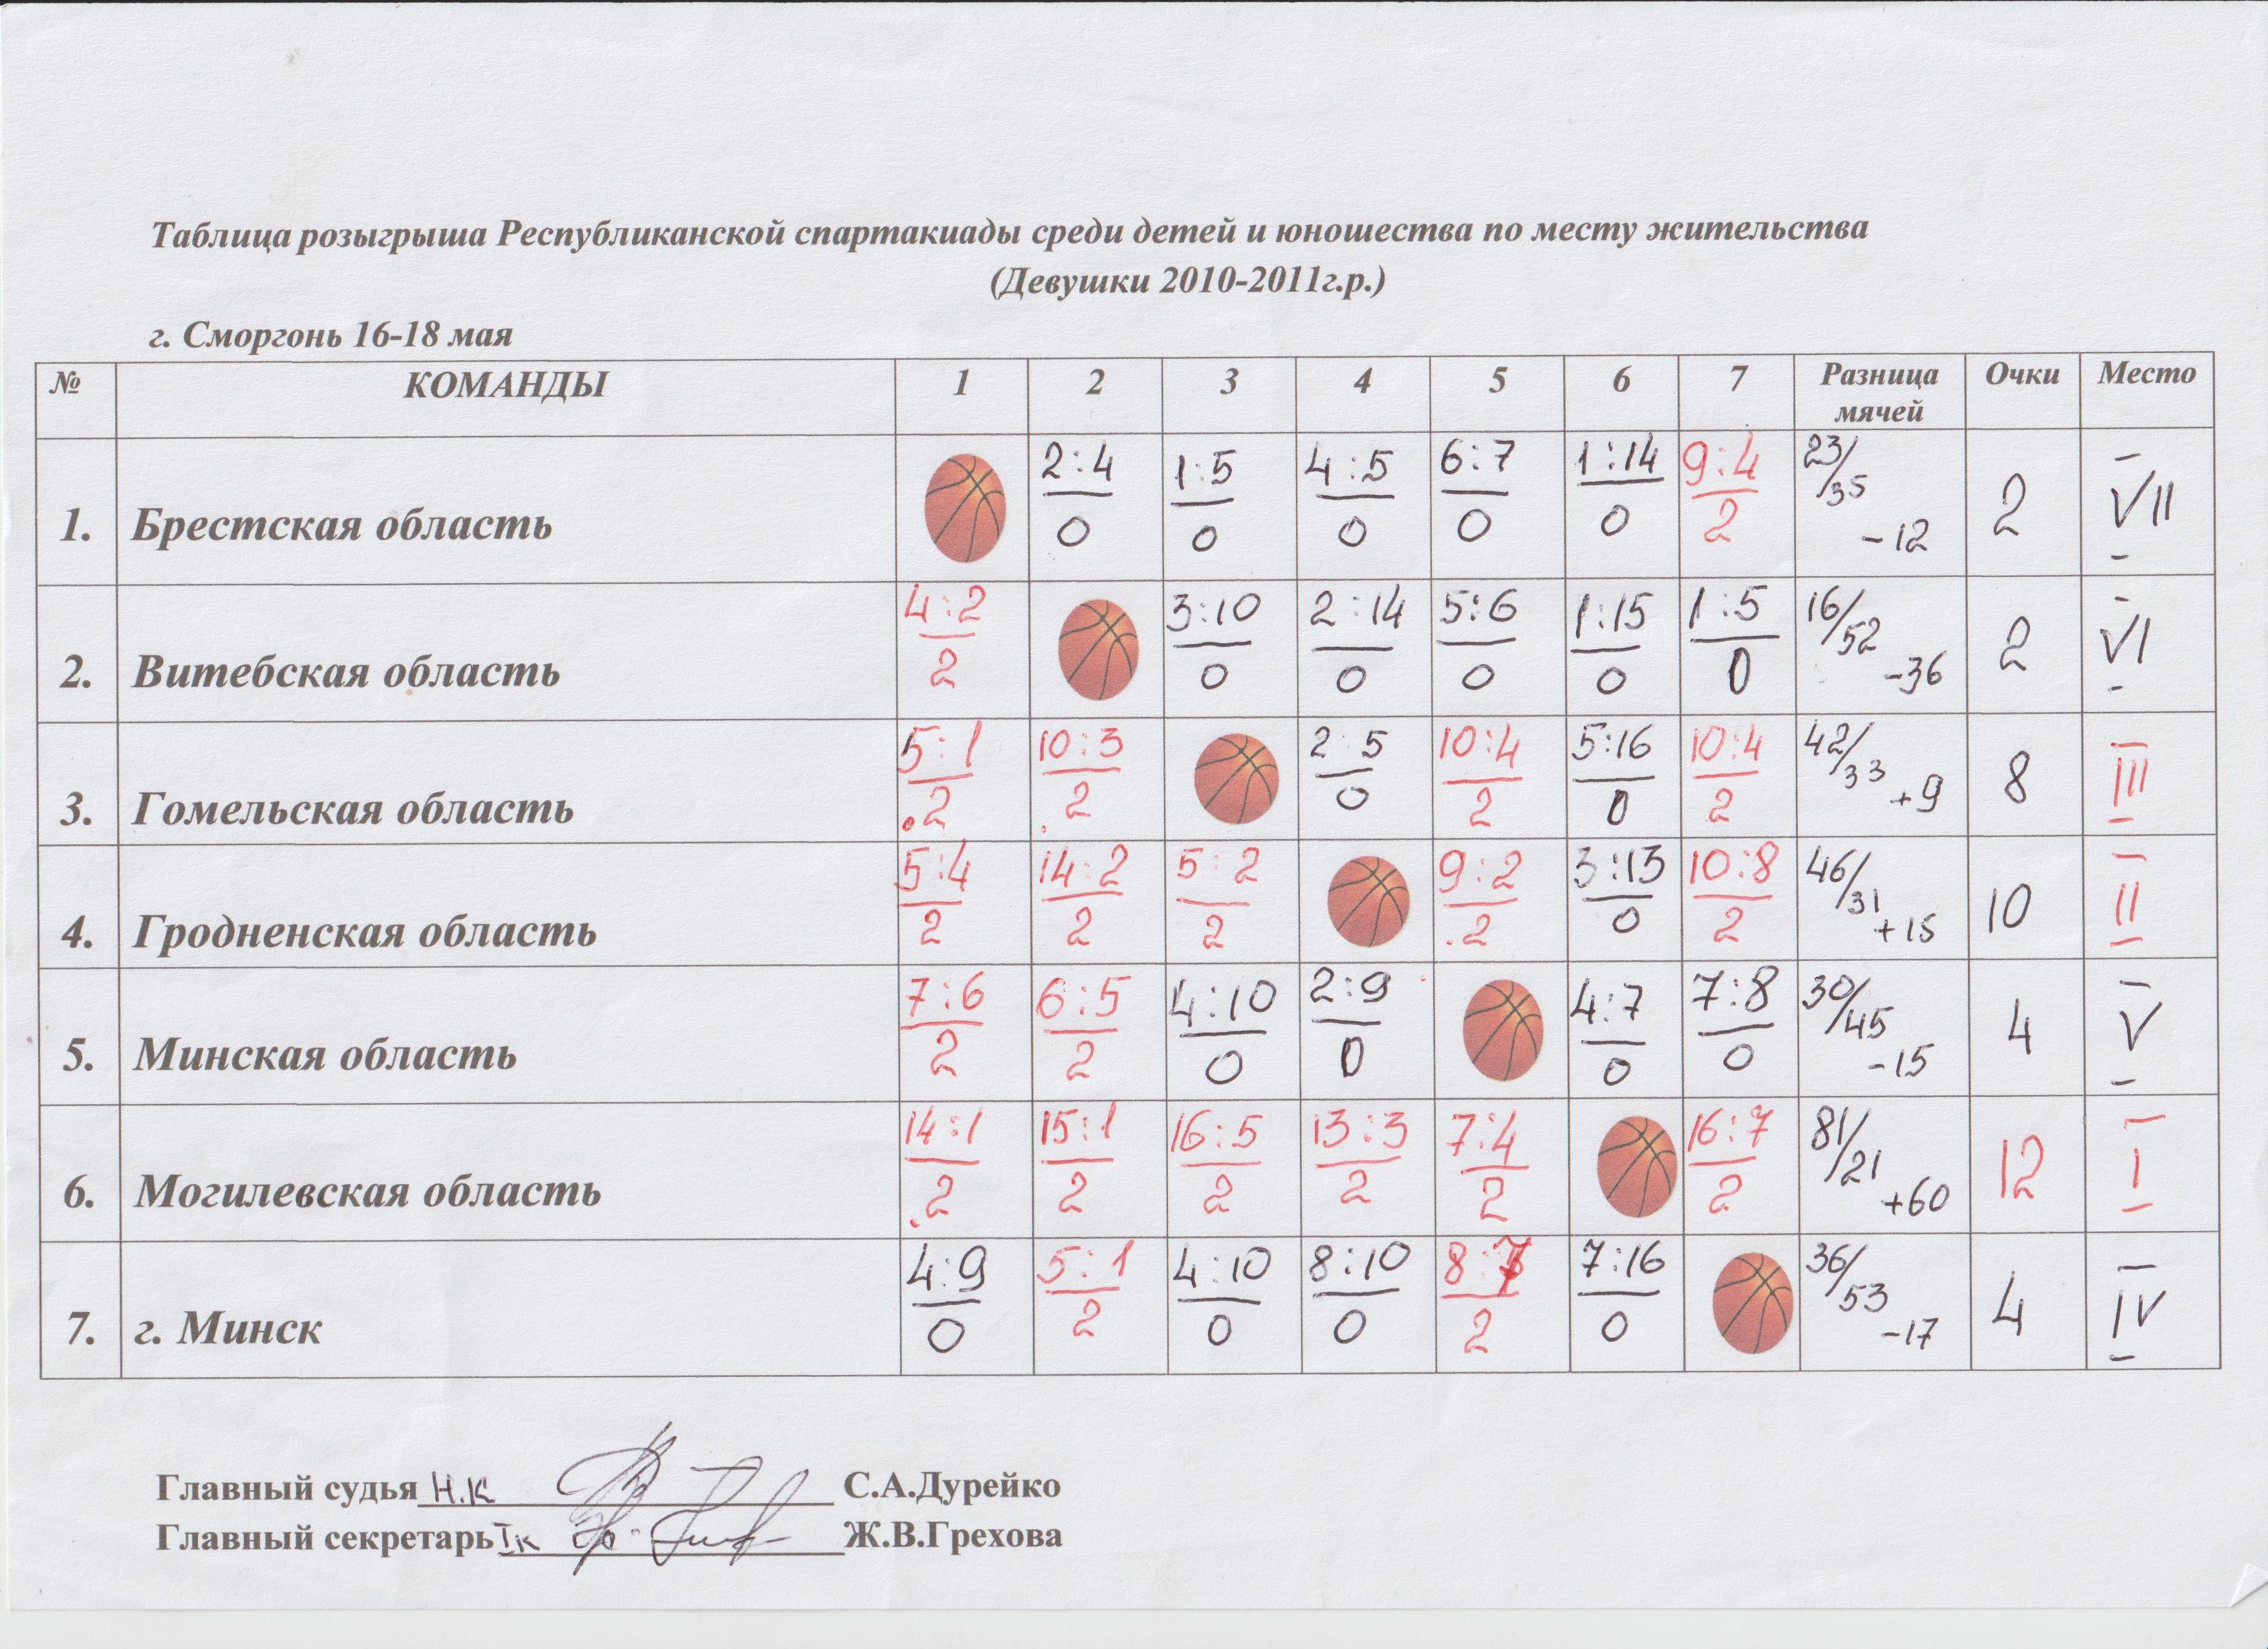 Таблица розыгрыша Республиканской спартакиады среди детей и юношества по месту жительства
(Девушки 2010-2011г.р.)
г. Сморгонь 16-18 мая
№ КОМАНДЫ 1 2 3 4 5 6 7 Разница мячей Очки Место
1. Брестская область 2:4 1:5 4:5 6:7 1:14 9:4 23/35 2 VII
0 0 0 0 0 2 -12
2. Витебская область 4:2 3:10 2:14 5:6 1:15 1:5 16/52 2 VI
2 0 0 0 0 0 -36
3. Гомельская область 5:1 10:3 2:5 10:4 5:16 10:4 42/33 8 III
2 2 0 2 0 2 +9
4. Гродненская область 5:4 14:2 5:2 9:2 3:13 10:8 46/31 10 II
2 2 2 2 0 2 +15
5. Минская область 7:6 6:5 4:10 2:9 4:7 7:8 30/45 4 V
2 2 0 0 0 0 -15
6. Могилевская область 14:1 15:1 16:5 13:3 7:4 16:7 81/21 12 I
2 2 2 2 2 2 +60
7. г. Минск 4:9 5:1 4:10 8:10 8:7 7:16 36/53 4 IV
0 2 0 0 2 0 -17
Главный судья Н.К С.А.Дурейко
Главный секретарь Iк Ж.В.Грехова